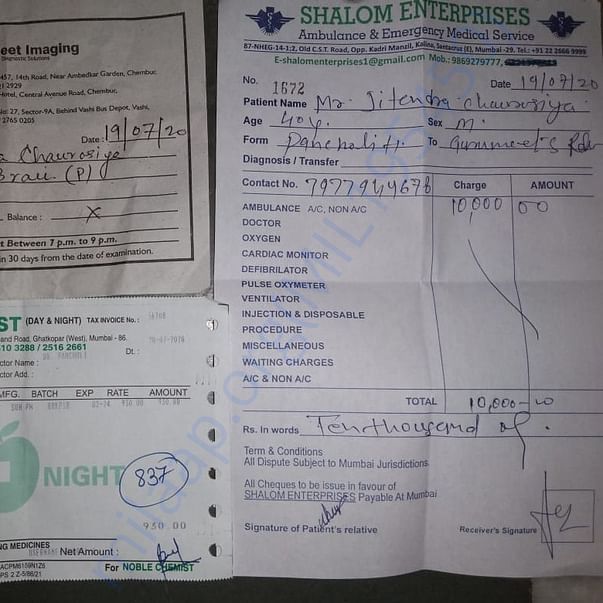 eet Imaging
Diagnostic Solutions
457, 14th Road, Near Ambedkar Garden, Chembur,
2929
Hotel, Central Avenue Road, Chembur,
No: 27, Sector-9A, Behind Vashi Bus Depot, Vashi,
2765 0205
Date: 19/07/20
a Chaurosiya
Brain (P)
Balance : X
t Between 7 p.m. to 9 p.m.
in 30 days from the date of examination.
ST (DAY & NIGHT) TAX INVOICE No.:
and Road, Ghatkopar (West), Mumbai - 86.
10 3288 / 2516 2661
Dt. :
ctor Name :
ctor Add. :
MFG. BATCH EXP RATE AMOUNT
930.00 930.00
NIGHT
837
930.00
NG MEDICINES
Net Amount :
For NOBLE CHEMIST
SHALOM ENTERPRISES
Ambulance & Emergency Medical Service
87-NHEG-14-1:2, Old C.S.T. Road, Opp. Kadri Manzil, Kalina, Santacruz (E), Mumbai -29. Tel.: +91 22 2666 9999
E-shalomenterprises1@gmail.com Mob.: 9869279777,
No. 1672 Date 19/07/20
Patient Name Mr. Jitendra chaurosiya
Age 40y. Sex M.
Form To
Diagnosis / Transfer
Contact No. Charge AMOUNT
AMBULANCE A/C, NON A/C 10,000 00
DOCTOR
OXYGEN
CARDIAC MONITOR
DEFIBRILATOR
PULSE OXYMETER
VENTILATOR
INJECTION & DISPOSABLE
PROCEDURE
MISCELLANEOUS
WAITING CHARGES
A/C & NON A/C
TOTAL 10,000-00
Rs. In words Ten thousand
Term & Conditions
All Dispute Subject to Mumbai Jurisdictions
All Cheques to be issue in favour of
SHALOM ENTERPRISES Payable At Mumbai
Signature of Patient's relative Receiver's Signature